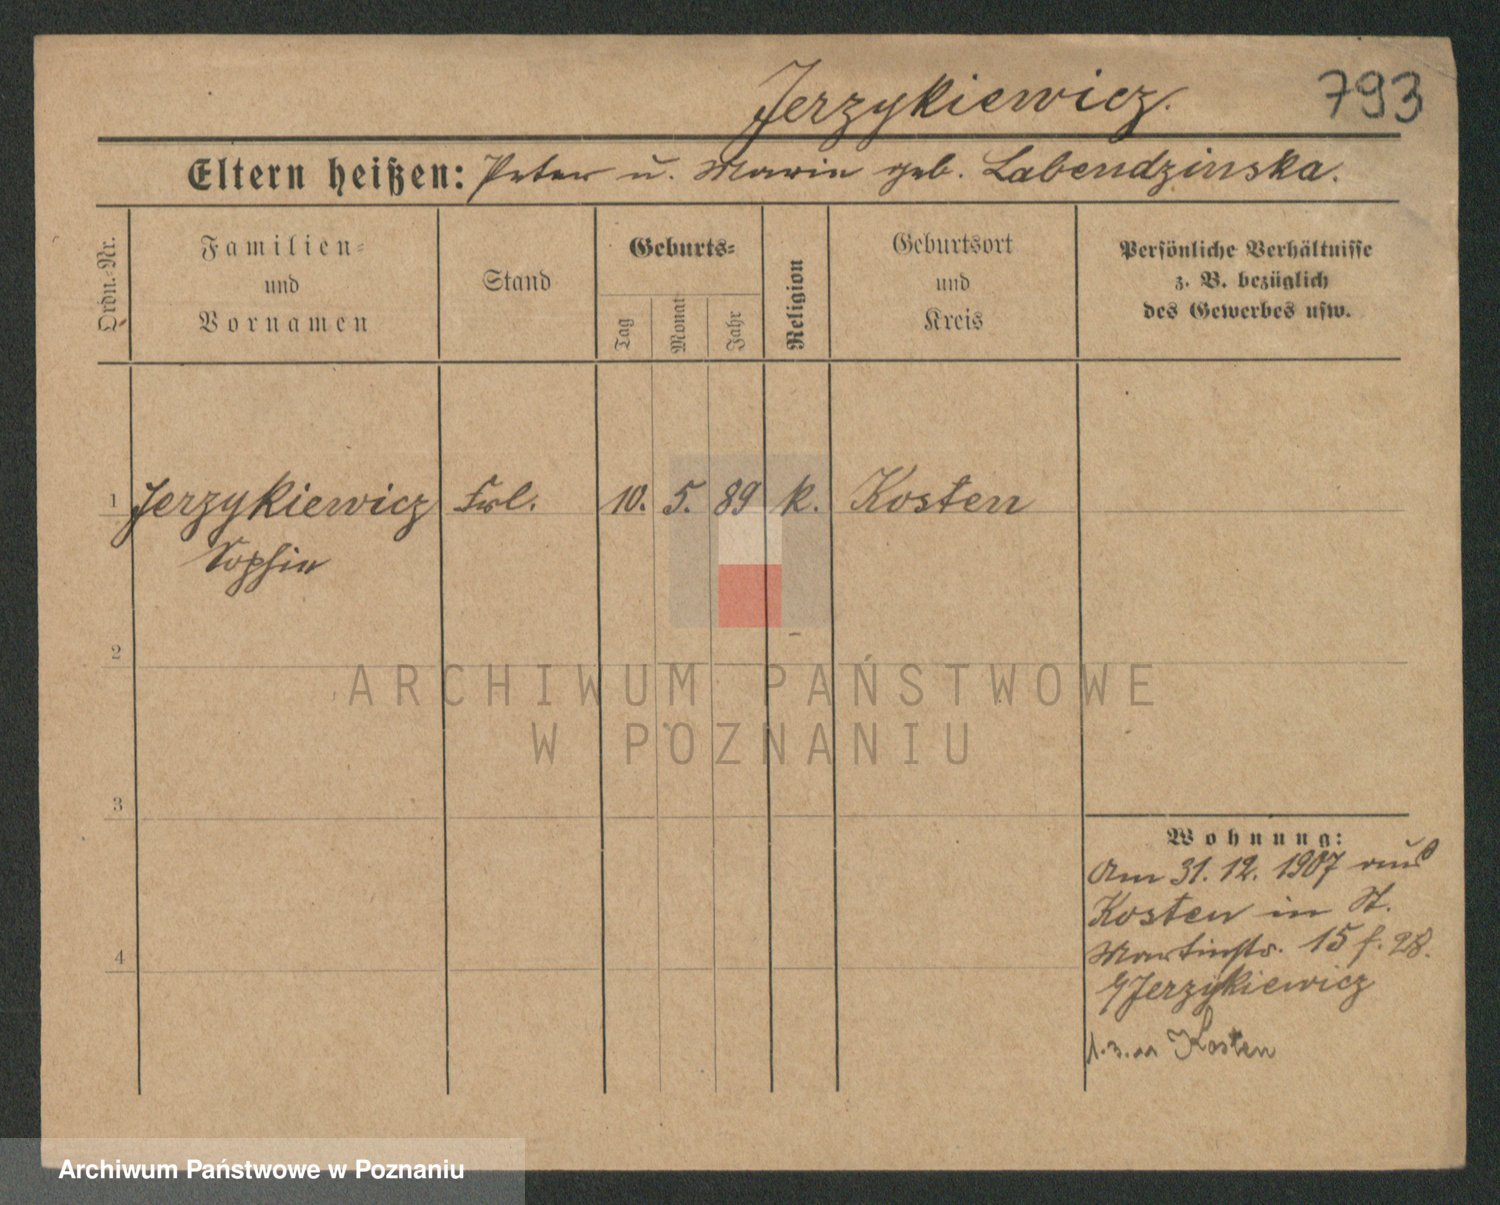 Jerzykiewicz.
793
Eltern heißen: Peter u. Marie geb. Labendzinska.
Ordn.-Nr.
Familien-
und
Vornamen
Stand
Geburts-
Tag
Monat
Jahr
Religion
Geburtsort
und
Kreis
Persönliche Verhältnisse
z. B. bezüglich
des Gewerbes usw.
1 Jerzykiewicz Frl. 10. 5. 89 k. Kosten
Sophie
2
3
4
Wohnung:
Am 31. 12. 1907 aus
Kosten in St.
Martinstr. 15 f. 28.
Jerzykiewicz
1. 3. Kosten
ARCHIWUM PAŃSTWOWE
W POZNANIU
Archiwum Państwowe w Poznaniu